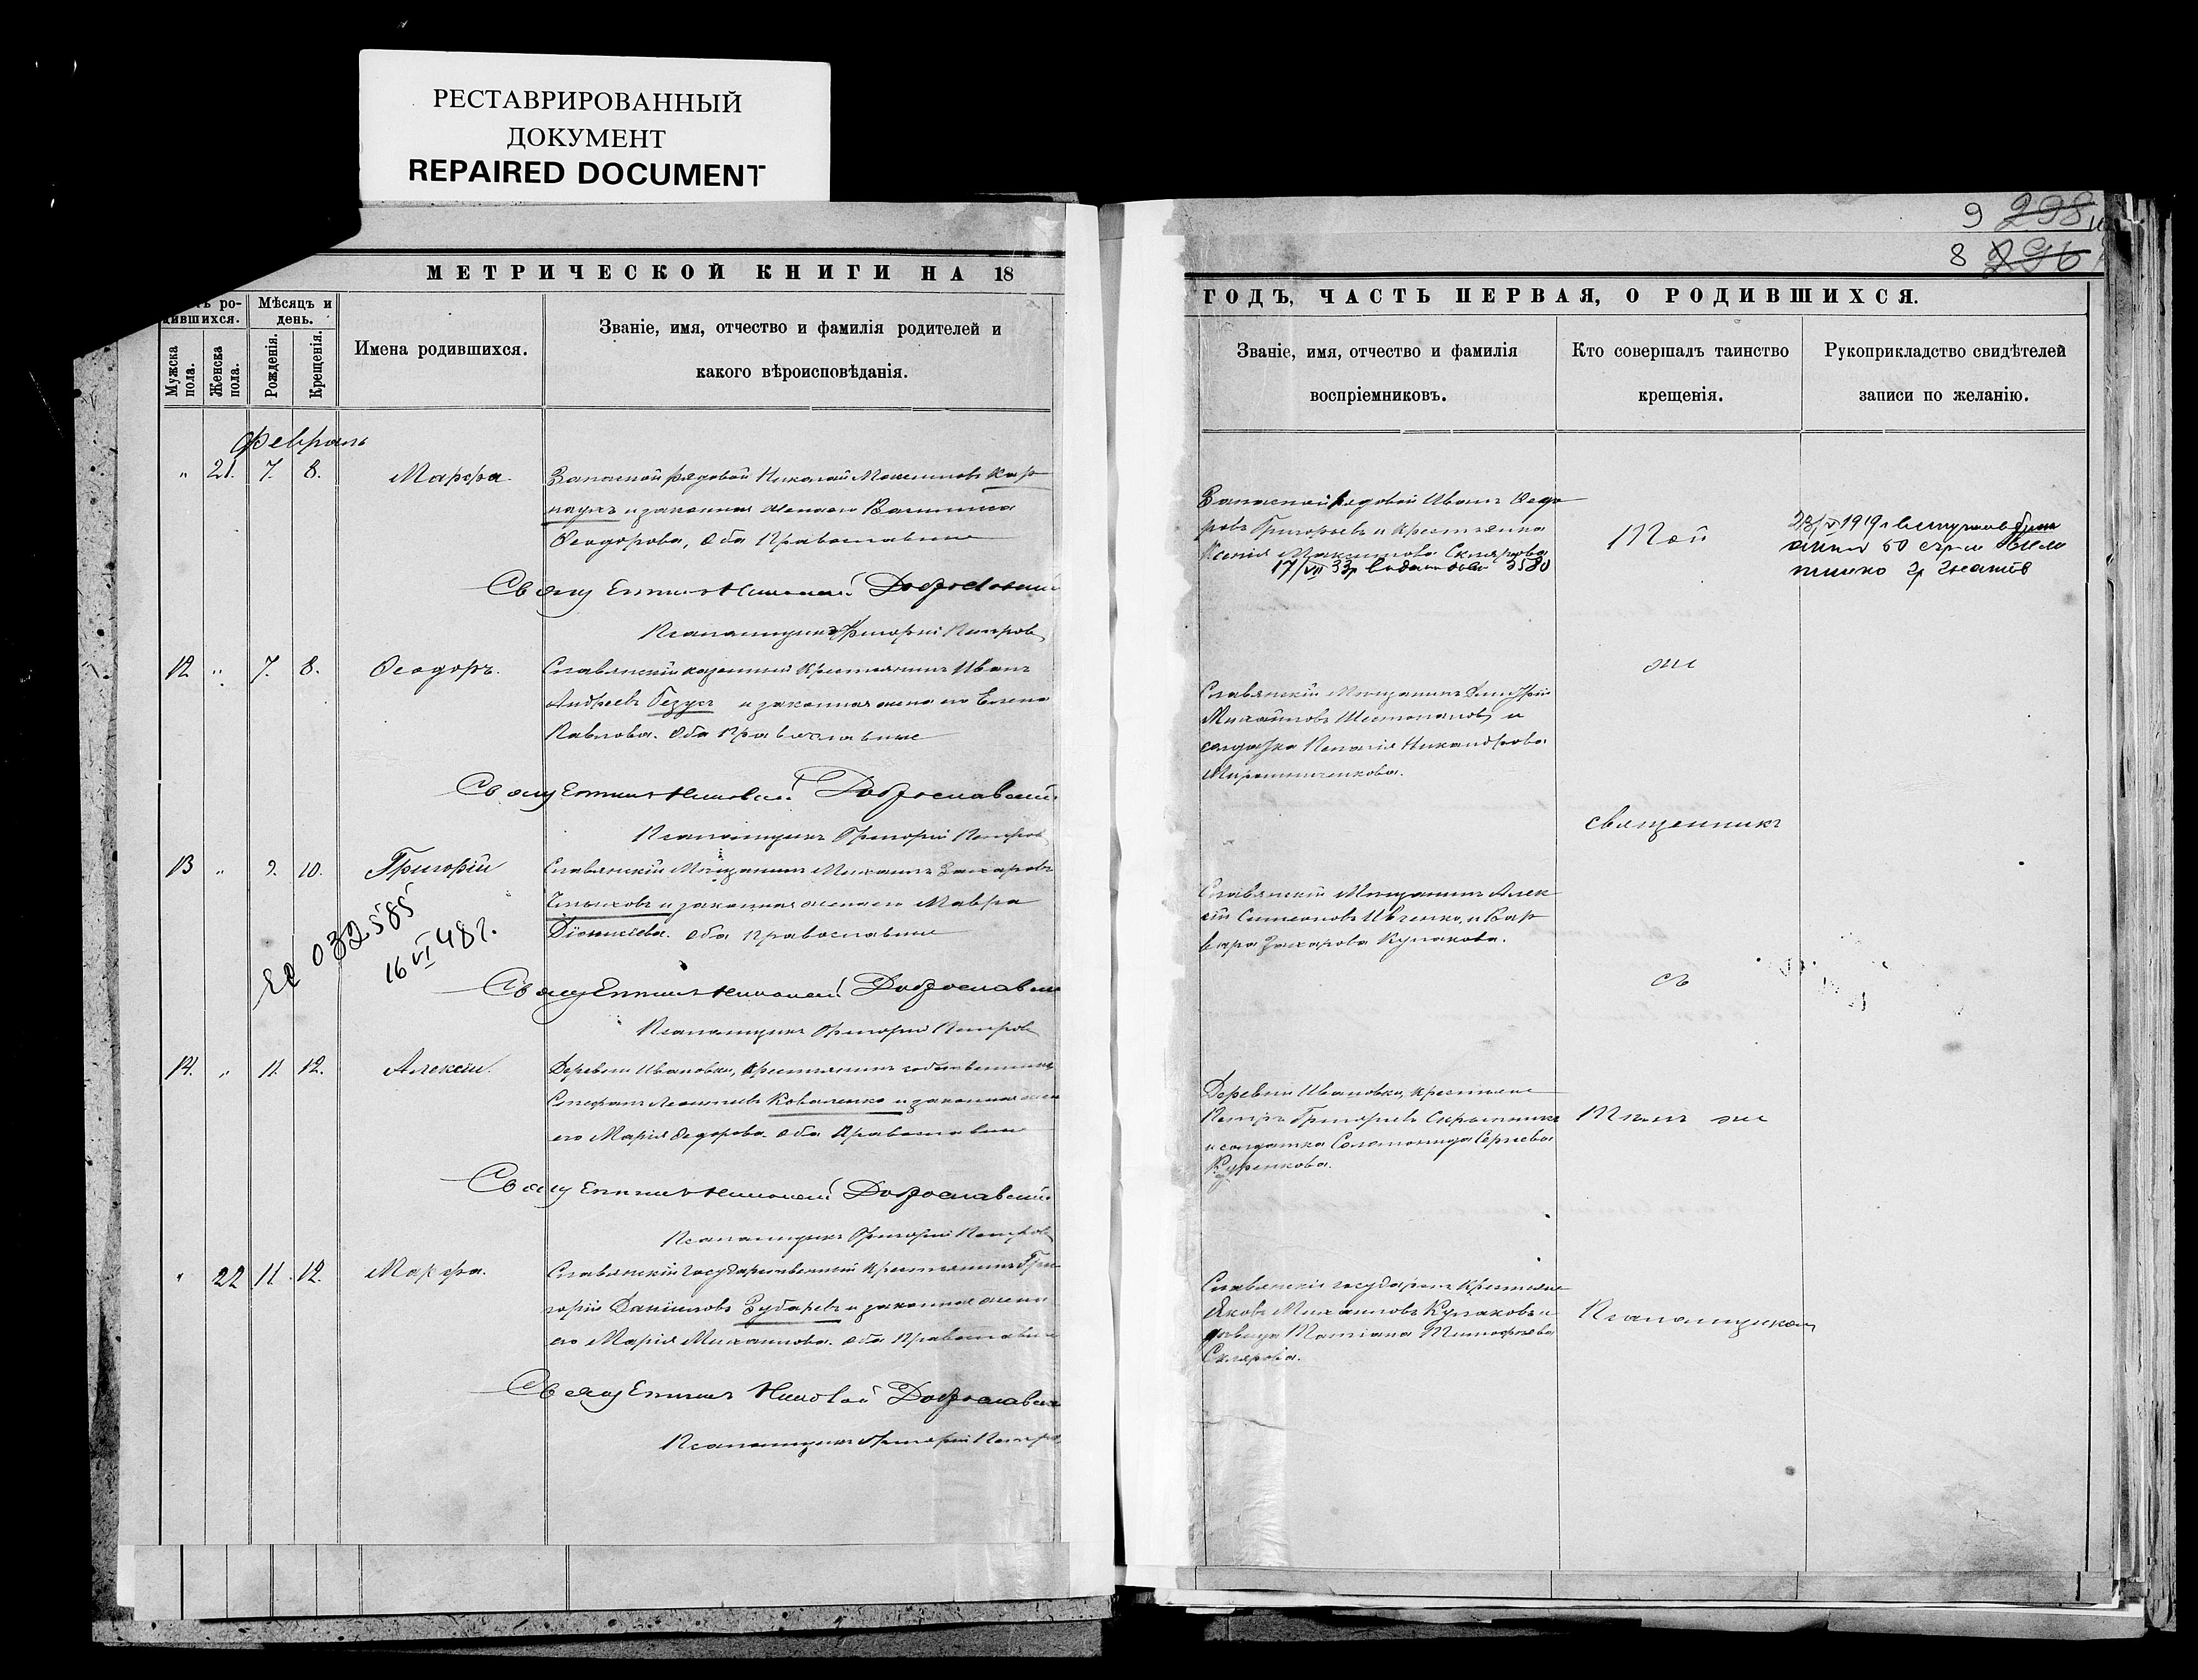 РЕСТАВРИРОВАННЫЙ
ДОКУМЕНТ
REPAIRED DOCUMENT
МЕТРИЧЕСКОЙ КНИГИ НА 18
ро-
дившихся.
Мѣсяцъ и
день.
Мужска
пола.
Женска
пола.
Рожденія.
Крещенія.
Имена родившихся.
Званіе, имя, отчество и фамилія родителей и
какого вѣроисповѣданія.
Февраль
" 21. 7. 8. Марѳа. Запасной рядовой Николай Максимовъ Кар
и законная жена его
Ѳеодорова, оба Православные
Николай Доброславскій
Псаломщикъ Григорій Петровъ
12 " 7. 8. Ѳеодоръ. Славянскій казенный крестьянинъ Иванъ
Андреевъ и законная жена его Елена
Павлова. Оба Православные
Николай Доброславскій
Псаломщикъ Григорій Петровъ
13 " 9. 10. Григорій Славянскій Мѣщанинъ Михаилъ Захаровъ
и законная жена его Мавра
Діонисіева. Оба Православные
032585
16 VI 48 г.
Николай Доброславскій
Псаломщикъ Григорій Петровъ
14. " 11. 12. Алексій. Деревни Ивановки, крестьянинъ собственникъ
Стефанъ Леонтьевъ Коваленко и законная жена
его Марія Ѳедорова. Оба Православные
Николай Доброславскій
Псаломщикъ Григорій Петровъ
" 22 11. 12. Марѳа. Славянскій государственный крестьянинъ Гри
горій Даніиловъ Зубаревъ и законная жена
его Марія Михаилова. Оба Православные
Николай Доброславскій
Псаломщикъ Григорій Петровъ
9 298
8 296
ГОДЪ, ЧАСТЬ ПЕРВАЯ, О РОДИВШИХСЯ.
Званіе, имя, отчество и фамилія
воспріемниковъ.
Кто совершалъ таинство
крещенія.
Рукоприкладство свидѣтелей
записи по желанію.
Запасной рядовой Иванъ Ѳедо
ровъ Григорьевъ и крестьянка
Ксенія Максимова Склярова
17/VII 33г 3580
Той
1919
же
Славянскій Мѣщанинъ Димитрій
Михайловъ Шестопаловъ и
солдатка Пелагія Никандрова
Мирошниченкова.
священникъ
Славянскій Мѣщанинъ Алек
сій Симеоновъ Ивченко, и Вар
вара Захарова Кулакова.
съ
Деревни Ивановки, крестьяне
Петръ Григорьевъ Скрыпникъ
и солдатка Соломонида Сергіева
Куренкова.
тѣмъ же
Славянскіе государств крестьяне
Яковъ Михаиловъ Кулаковъ и
дѣвица Татіана Тимофѣева
Склярова.
Псаломщикомъ